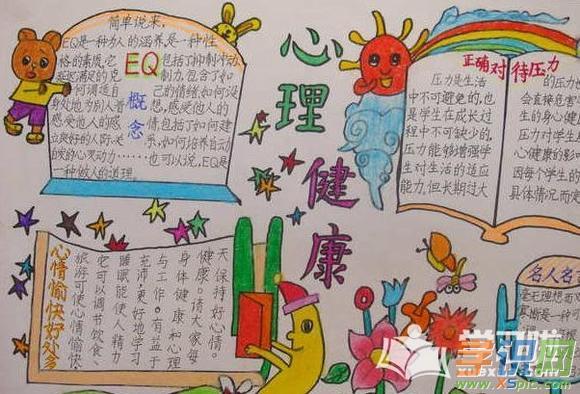 心理健康
简单说来，
EQ是一种为人的涵养，是一种性
格的素质，它包括了抑制冲动
延迟满足的克制力，包含了如
何调适自己的情绪，如何设
身处地为别人着想，感受他人的
感受他人的感情，包括了如何建
立良好的人际关系，如何培养自动
自发的心灵动力……也可以说，EQ是
一种做人的道理。
EQ
概念
正确对待压力
压力是生活
中不可避免的，也
是学生在成长过
程中不可缺少的，
压力能够增强学
生对生活的适应
能力，但长期过大
的压力也
会直接危害
生的身心健
压力对学生
心健康的影
因每个学生的
具体情况而
心情愉快好处多
旅游可使心情愉快
它可以调节饮食
睡眠能使人精力
充沛，更好地学习
与工作。有益于
身体健康和心理
健康。请大家每
天保持好心情。
名人名
毫无理想而
是一种可
学识网
www.xspic.com